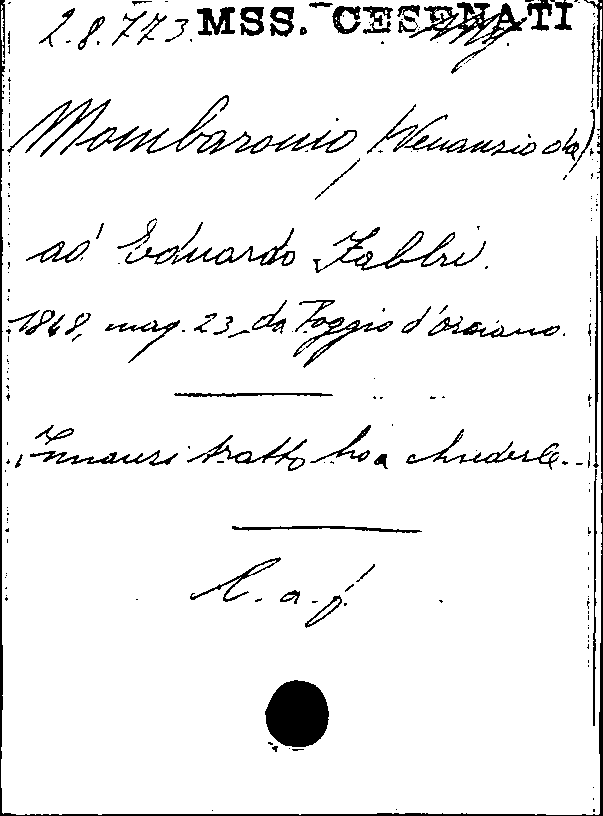 2.8.773. MSS. CESENATI
Mombaronio (Venanzio da)
ad Eduardo Fabbri.
1848, mag. 23, da Poggio d'orciano.
Innanzi tratto ho a chiederle...
l. a. f.